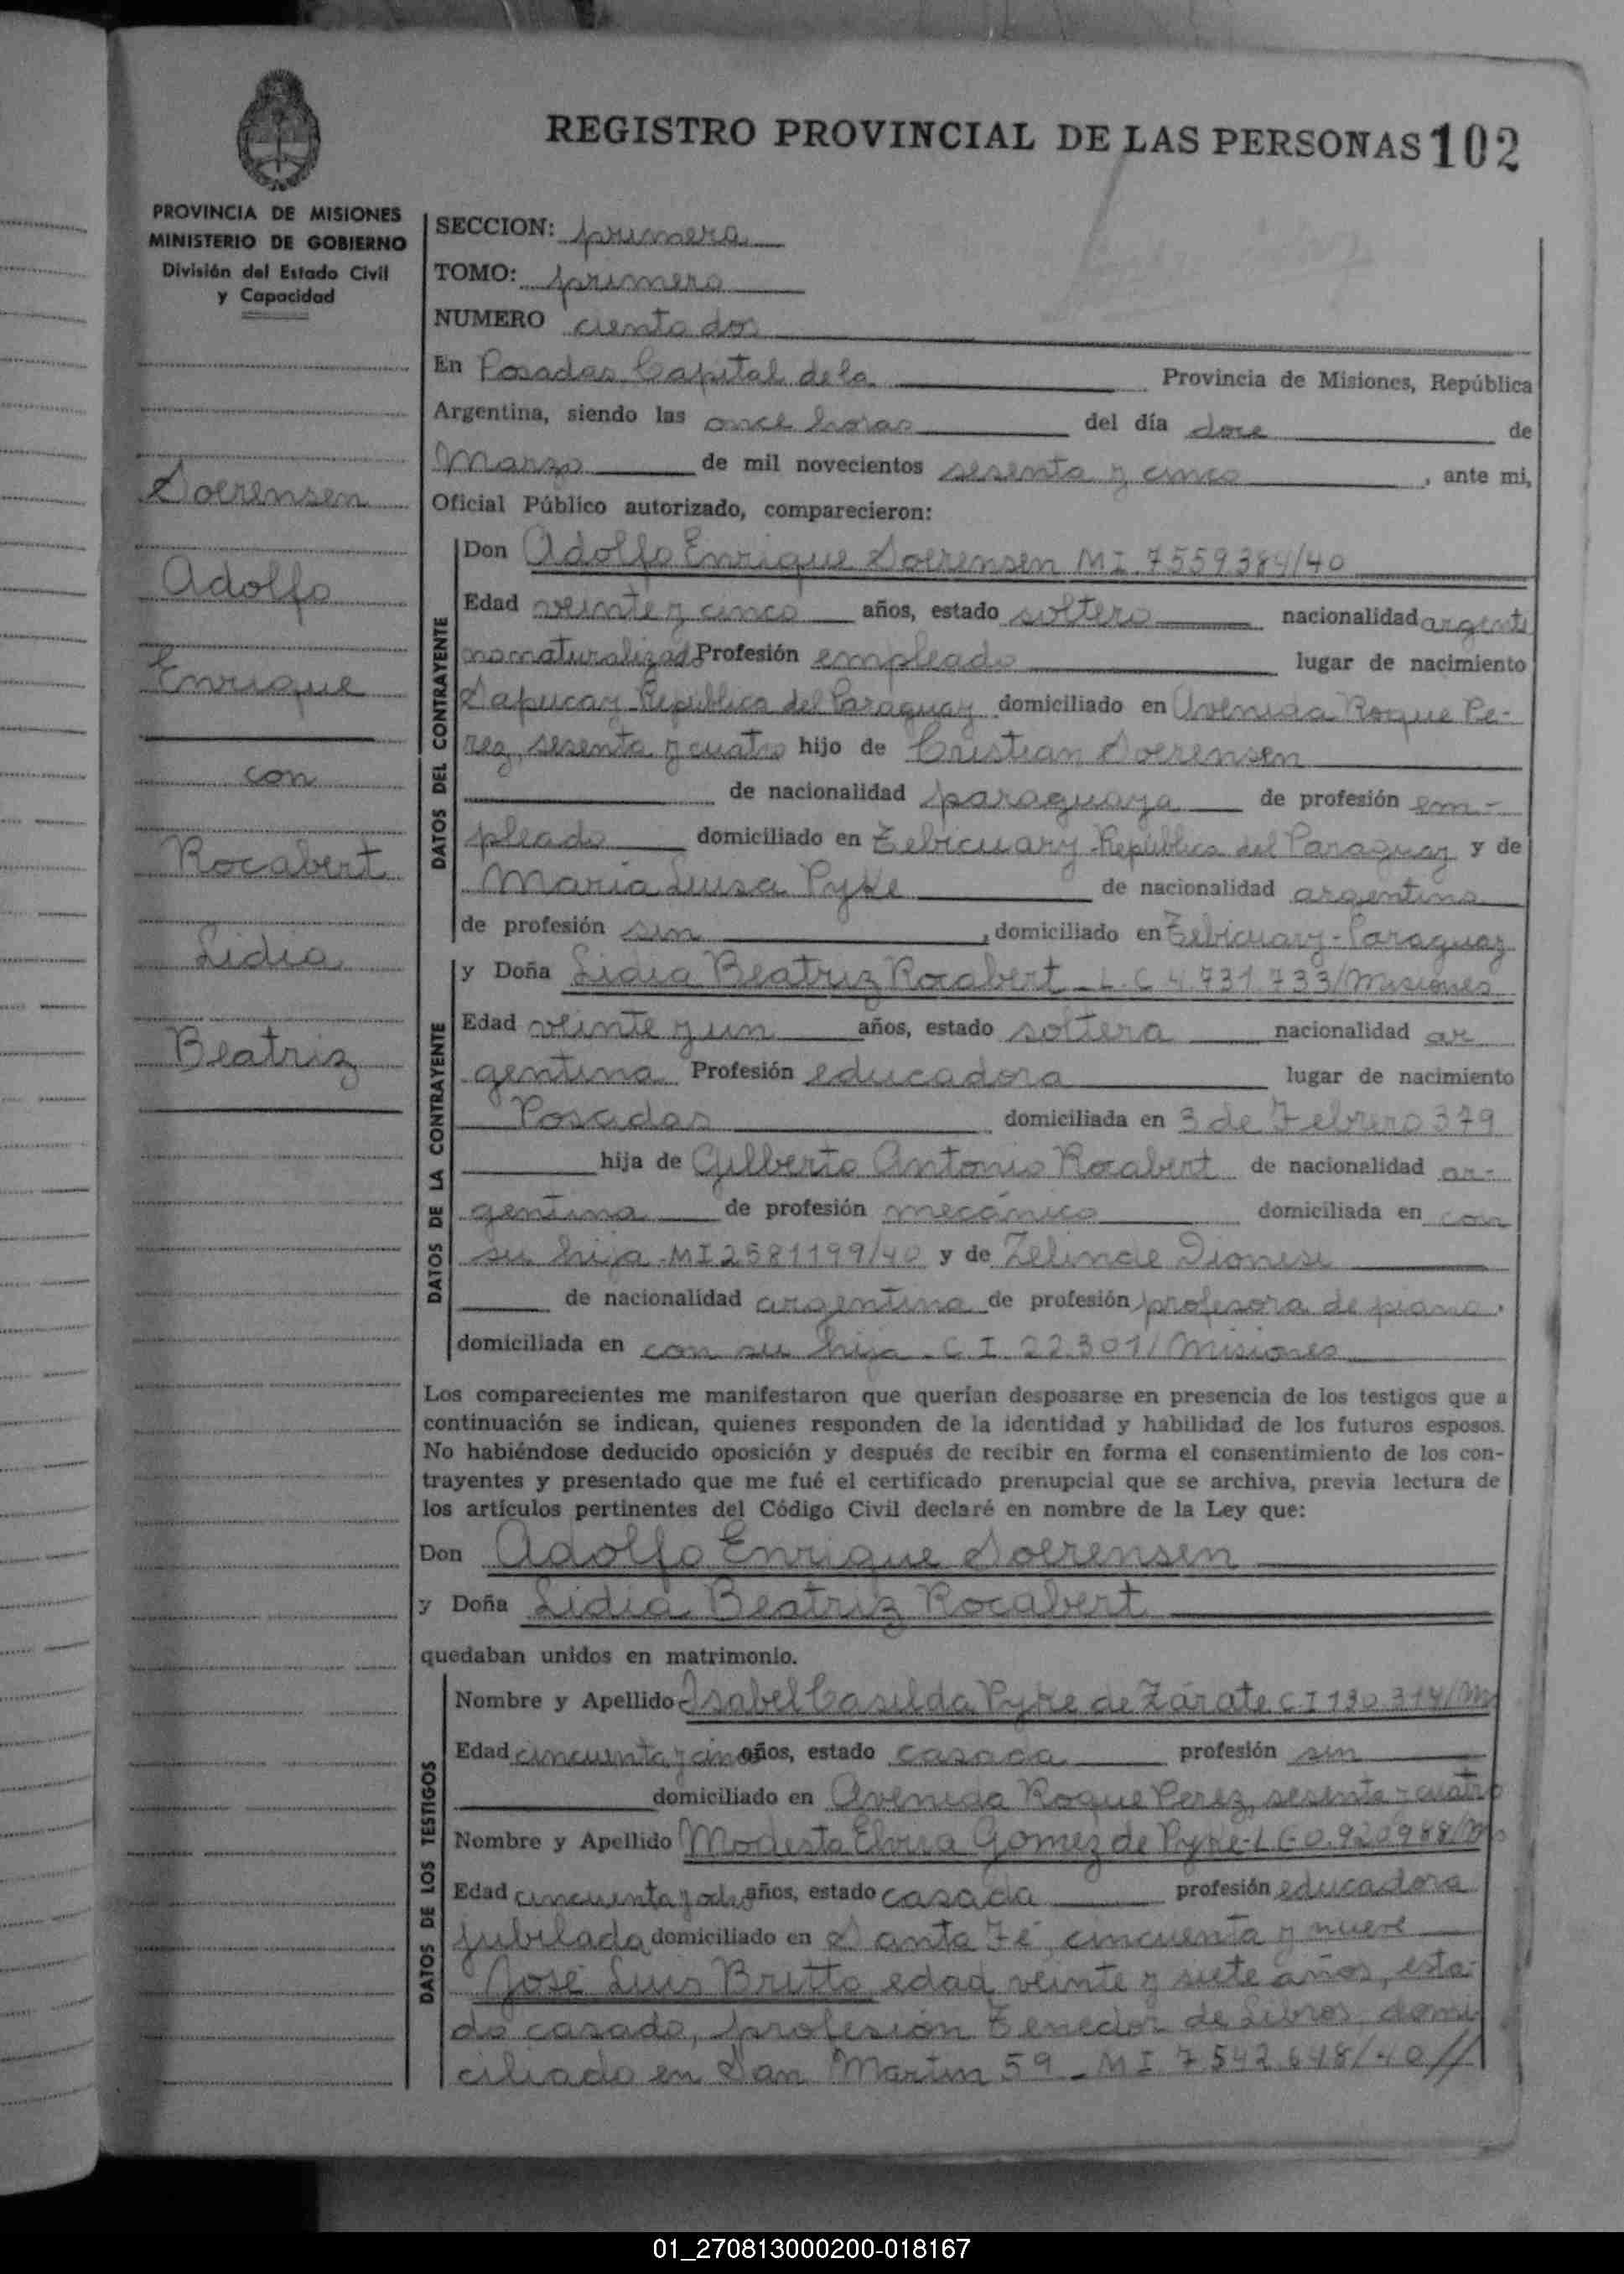 REGISTRO PROVINCIAL DE LAS PERSONAS 102
PROVINCIA DE MISIONES
MINISTERIO DE GOBIERNO
División del Estado Civil
y Capacidad
Soerensen
Adolfo
Enrique
con
Rocabert
Lidia
Beatriz
SECCION: primera
TOMO: primero
NUMERO ciento dos
En Posadas Capital de la Provincia de Misiones, República
Argentina, siendo las once horas del día doce de
Marzo de mil novecientos sesenta y cinco, ante mi,
Oficial Público autorizado, comparecieron:
DATOS DEL CONTRAYENTE
Don Adolfo Enrique Soerensen MI 7559384/40
Edad veinte y cinco años, estado soltero nacionalidad argenti
no naturalizado Profesión empleado lugar de nacimiento
Sapucay-República del Paraguay domiciliado en Avenida Roque Pe-
rez, sesenta y cuatro hijo de Cristian Soerensen
de nacionalidad paraguaya de profesión em-
pleado domiciliado en Tebicuary-República del Paraguay y de
Maria Luisa Pyke de nacionalidad argentina
de profesión sin, domiciliado en Tebicuary-Paraguay
DATOS DE LA CONTRAYENTE
y Doña Lidia Beatriz Rocabert - L.C 4.731.733/Misiones
Edad veinte y un años, estado soltera nacionalidad ar
gentina Profesión educadora lugar de nacimiento
Posadas domiciliada en 3 de Febrero 379
hija de Gilberto Antonio Rocabert de nacionalidad ar-
gentina de profesión mecánico domiciliada en con
su hija-MI 2581199/40 y de Zelinde Dionisi
de nacionalidad argentina de profesión profesora de piano,
domiciliada en con su hija - C.I. 22.301/Misiones
Los comparecientes me manifestaron que querían desposarse en presencia de los testigos que a
continuación se indican, quienes responden de la identidad y habilidad de los futuros esposos.
No habiéndose deducido oposición y después de recibir en forma el consentimiento de los con-
trayentes y presentado que me fué el certificado prenupcial que se archiva, previa lectura de
los artículos pertinentes del Código Civil declaré en nombre de la Ley que:
Don Adolfo Enrique Soerensen
y Doña Lidia Beatriz Rocabert
quedaban unidos en matrimonio.
DATOS DE LOS TESTIGOS
Nombre y Apellido Isabel Casilda Pyke de Zárate C I 130.314/M
Edad cincuenta y cinco años, estado casada profesión sin
domiciliado en Avenida Roque Perez, sesenta y cuatro
Nombre y Apellido Modesta Elvira Gomez de Pyke-L C-0.920988/M
Edad cincuenta y ocho años, estado casada profesión educadora
jubilada domiciliado en Santa Fé, cincuenta y nueve
José Luis Britto edad veinte y siete años, esta-
do casado, profesión Tenedor de Libros domi
ciliado en San Martin 59 - MI 7.542.648/40//
01_270813000200-018167